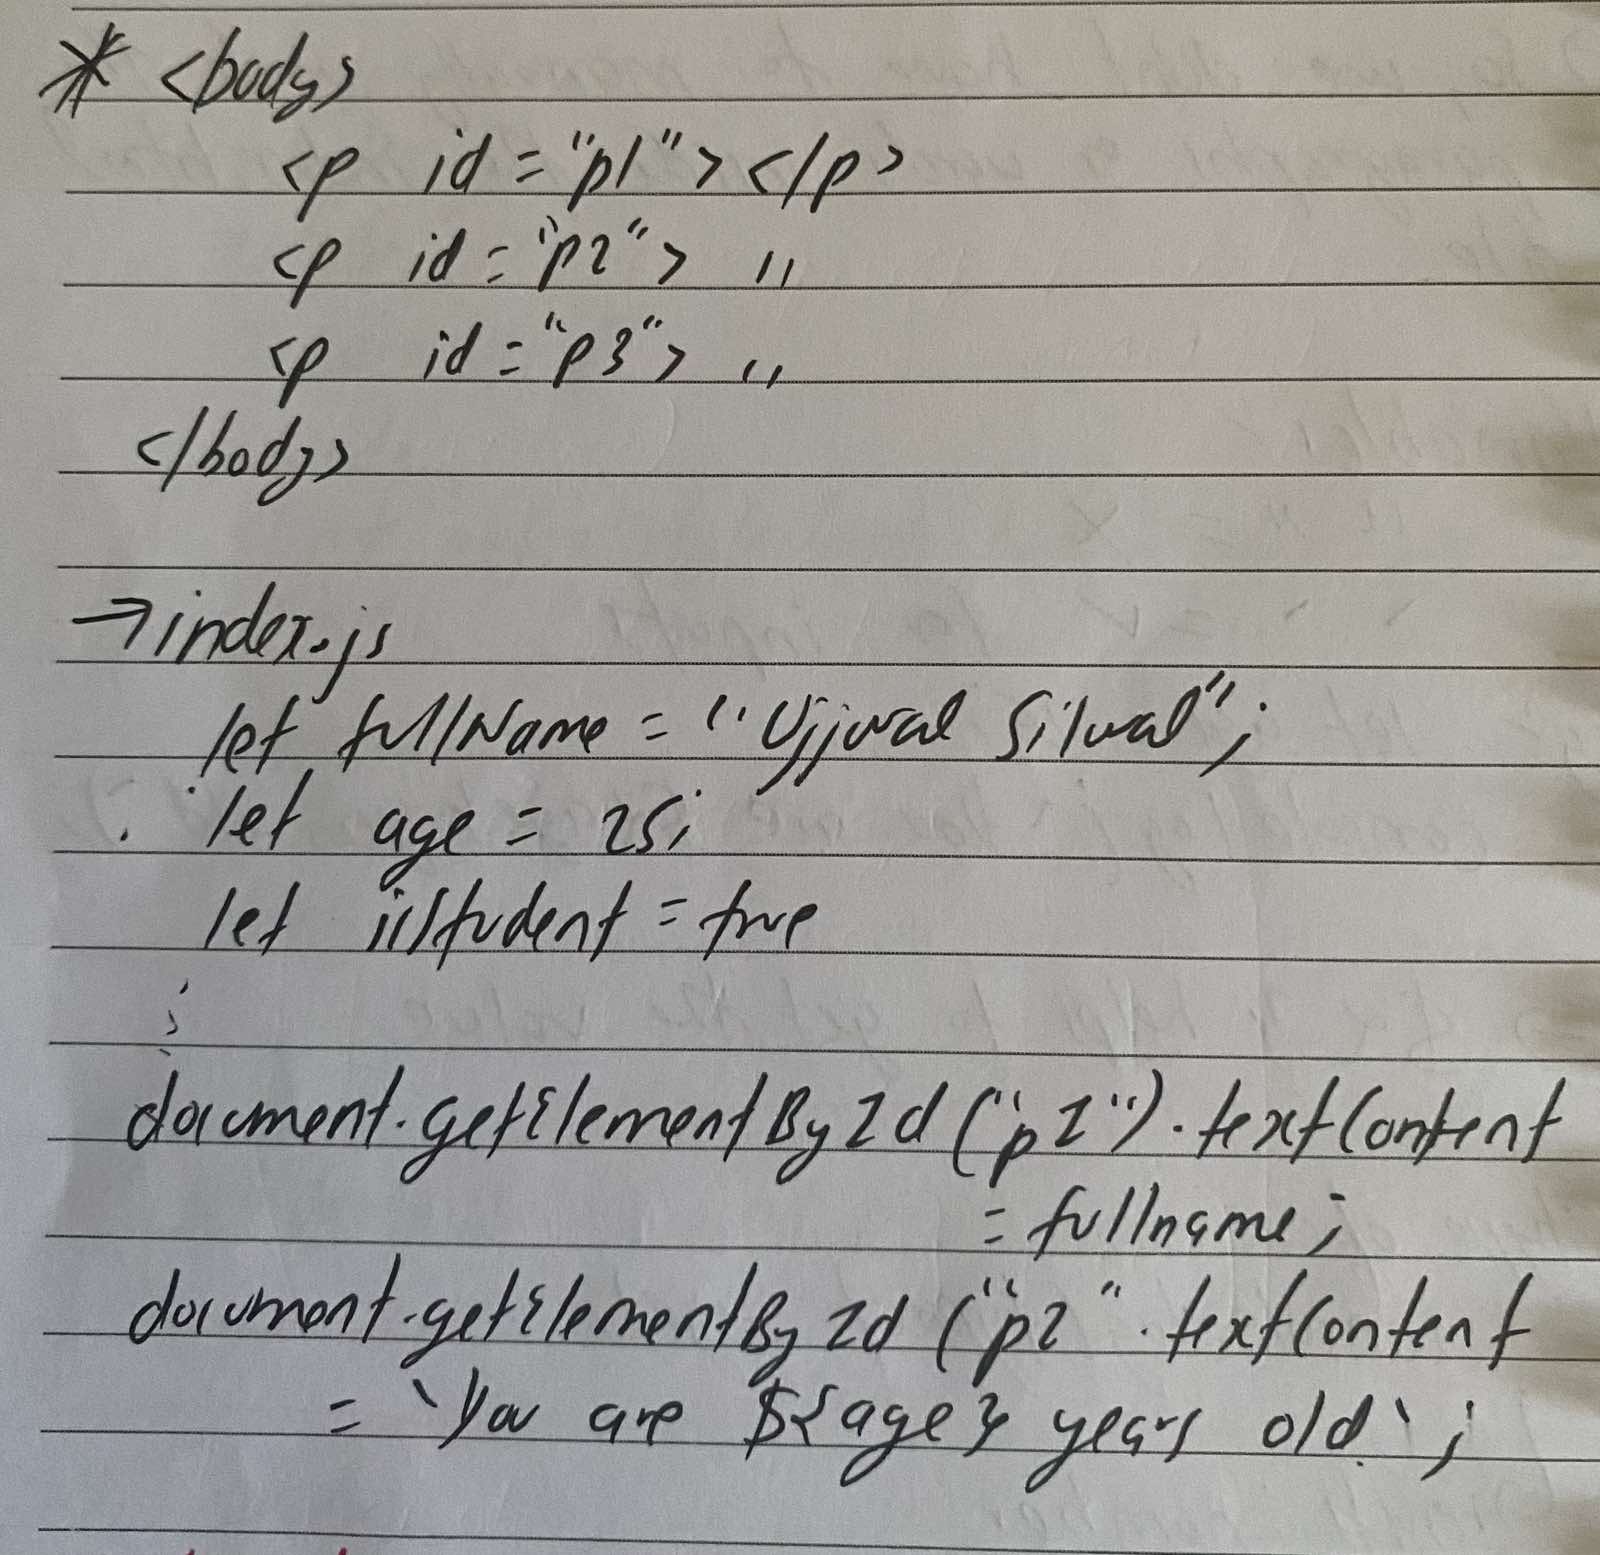 * <body>
<p id = "p1"></p>
<p id = "p2"> "
<p id = "p3"> "
</body>
→ index.js
let fullName = "Ujjwal Silwal";
let age = 25;
let isStudent = true
:
document.getElementById("p1").textContent
= fullname;
document.getElementById("p2".textContent
= `You are ${age} years old`;